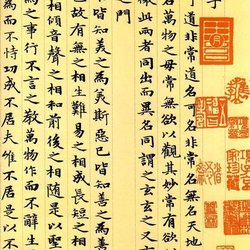 子
可道非常道名可名非常名無名天地
名萬物之母常無欲以觀其妙常有欲
徼此兩者同出而異名同謂之玄玄之又
之門
皆知美之為美斯惡已皆知善之為善
已故有無之相生難易之相成長短之相
相傾音聲之相和前後之相隨是以聖
為之事行不言之教萬物作而不辭生
為而不恃功成不居夫惟不居是以不